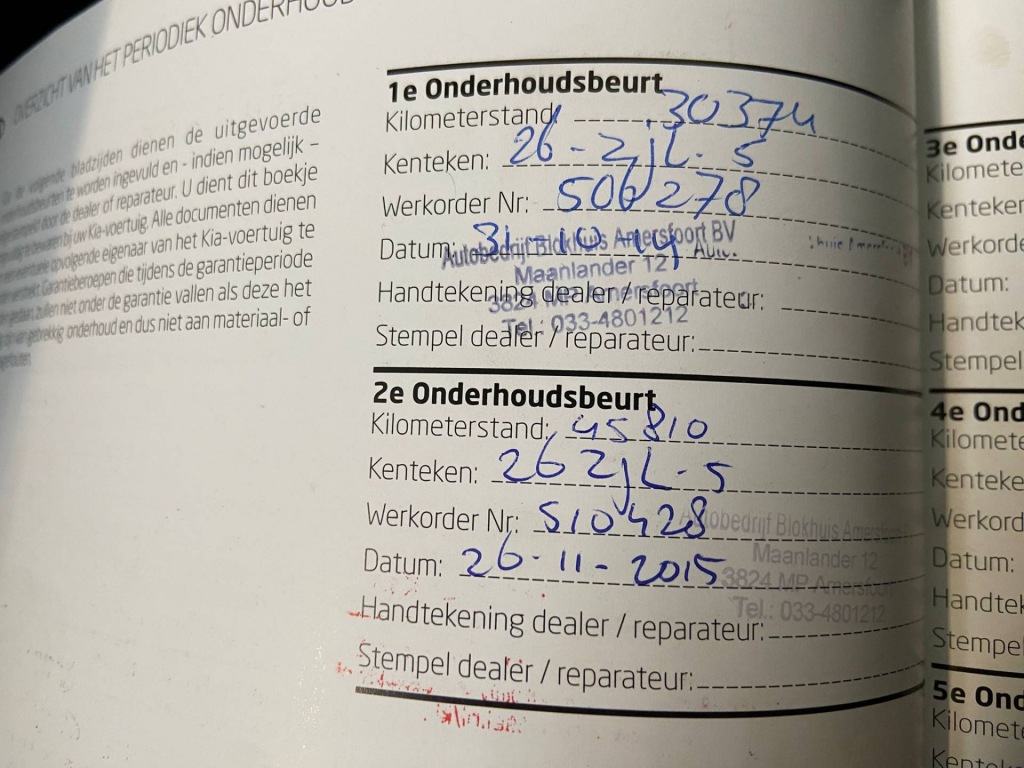 OVERZICHT VAN HET PERIODIEK ONDERHOUD
Op de volgende bladzijden dienen de uitgevoerde
onderhoudsbeurten te worden ingevuld en - indien mogelijk -
door de dealer of reparateur. U dient dit boekje
bij uw Kia-voertuig. Alle documenten dienen
opvolgende eigenaar van het Kia-voertuig te
Garantieberoepen die tijdens de garantieperiode
zullen niet onder de garantie vallen als deze het
van gebrekkig onderhoud en dus niet aan materiaal- of
1e Onderhoudsbeurt
Kilometerstand: 30374
Kenteken: 26-ZJL-5
Werkorder Nr: 506278
Datum: 31-10-14
Autobedrijf Blokhuis Amersfoort BV
Maanlander 12
3824 MP Amersfoort
Tel.: 033-4801212
Handtekening dealer / reparateur:
Stempel dealer / reparateur:
2e Onderhoudsbeurt
Kilometerstand: 45810
Kenteken: 26 ZJL-5
Werkorder Nr: 510428
Datum: 26-11-2015
Autobedrijf Blokhuis Amersfoort
Maanlander 12
3824 MP Amersfoort
Tel.: 033-4801212
Handtekening dealer / reparateur:
Stempel dealer / reparateur:
3e Onde
Kilomete
Kenteken
Werkorde
Datum:
Handtek
Stempel
4e Ond
Kilomete
Kenteke
Werkord
Datum:
Handtek
Stempe
5e Ond
Kilomet
Kenteke